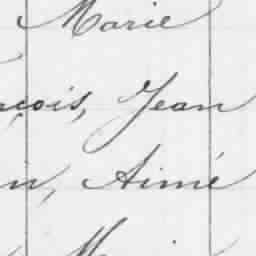 Marie
çois, Jean
n, Aimé